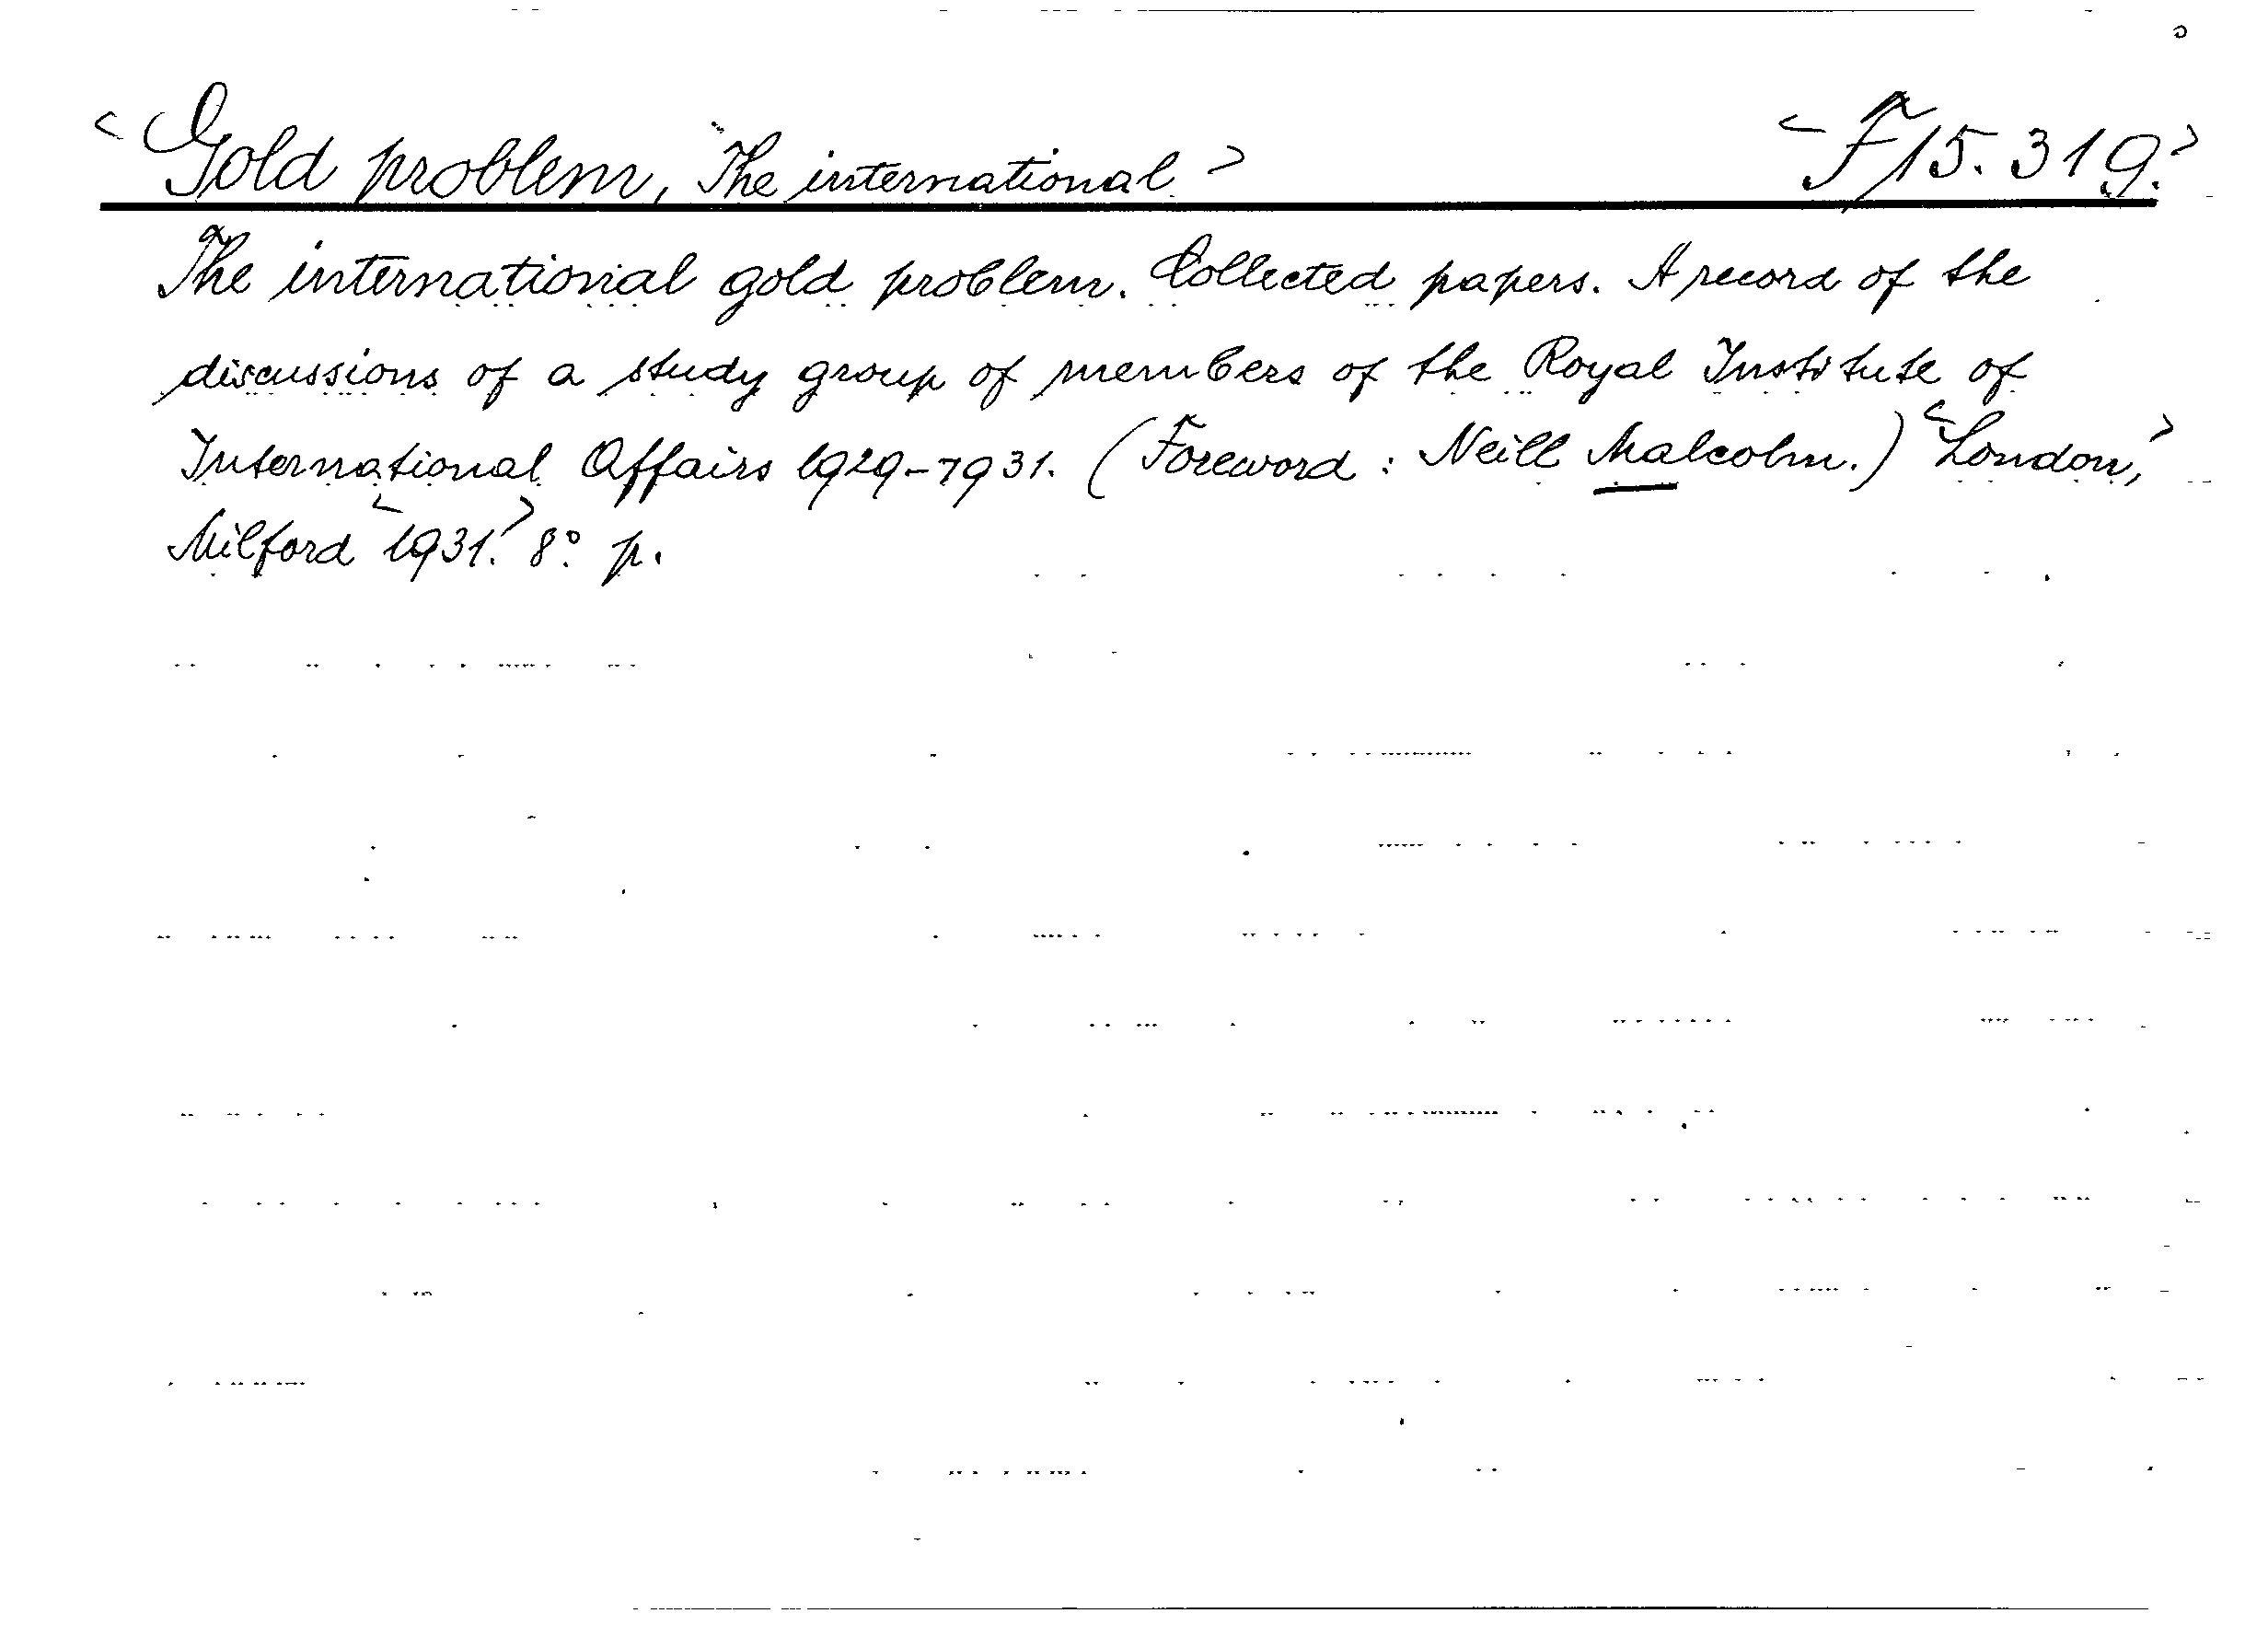 <Gold problem, The international> <F 15.319.>
The international gold problem. Collected papers. A record of the
discussions of a study group of members of the Royal Institute of
International Affairs 1929-1931. (Foreword: Neill Malcolm.) <London,>
Milford <1931.> 8° p.